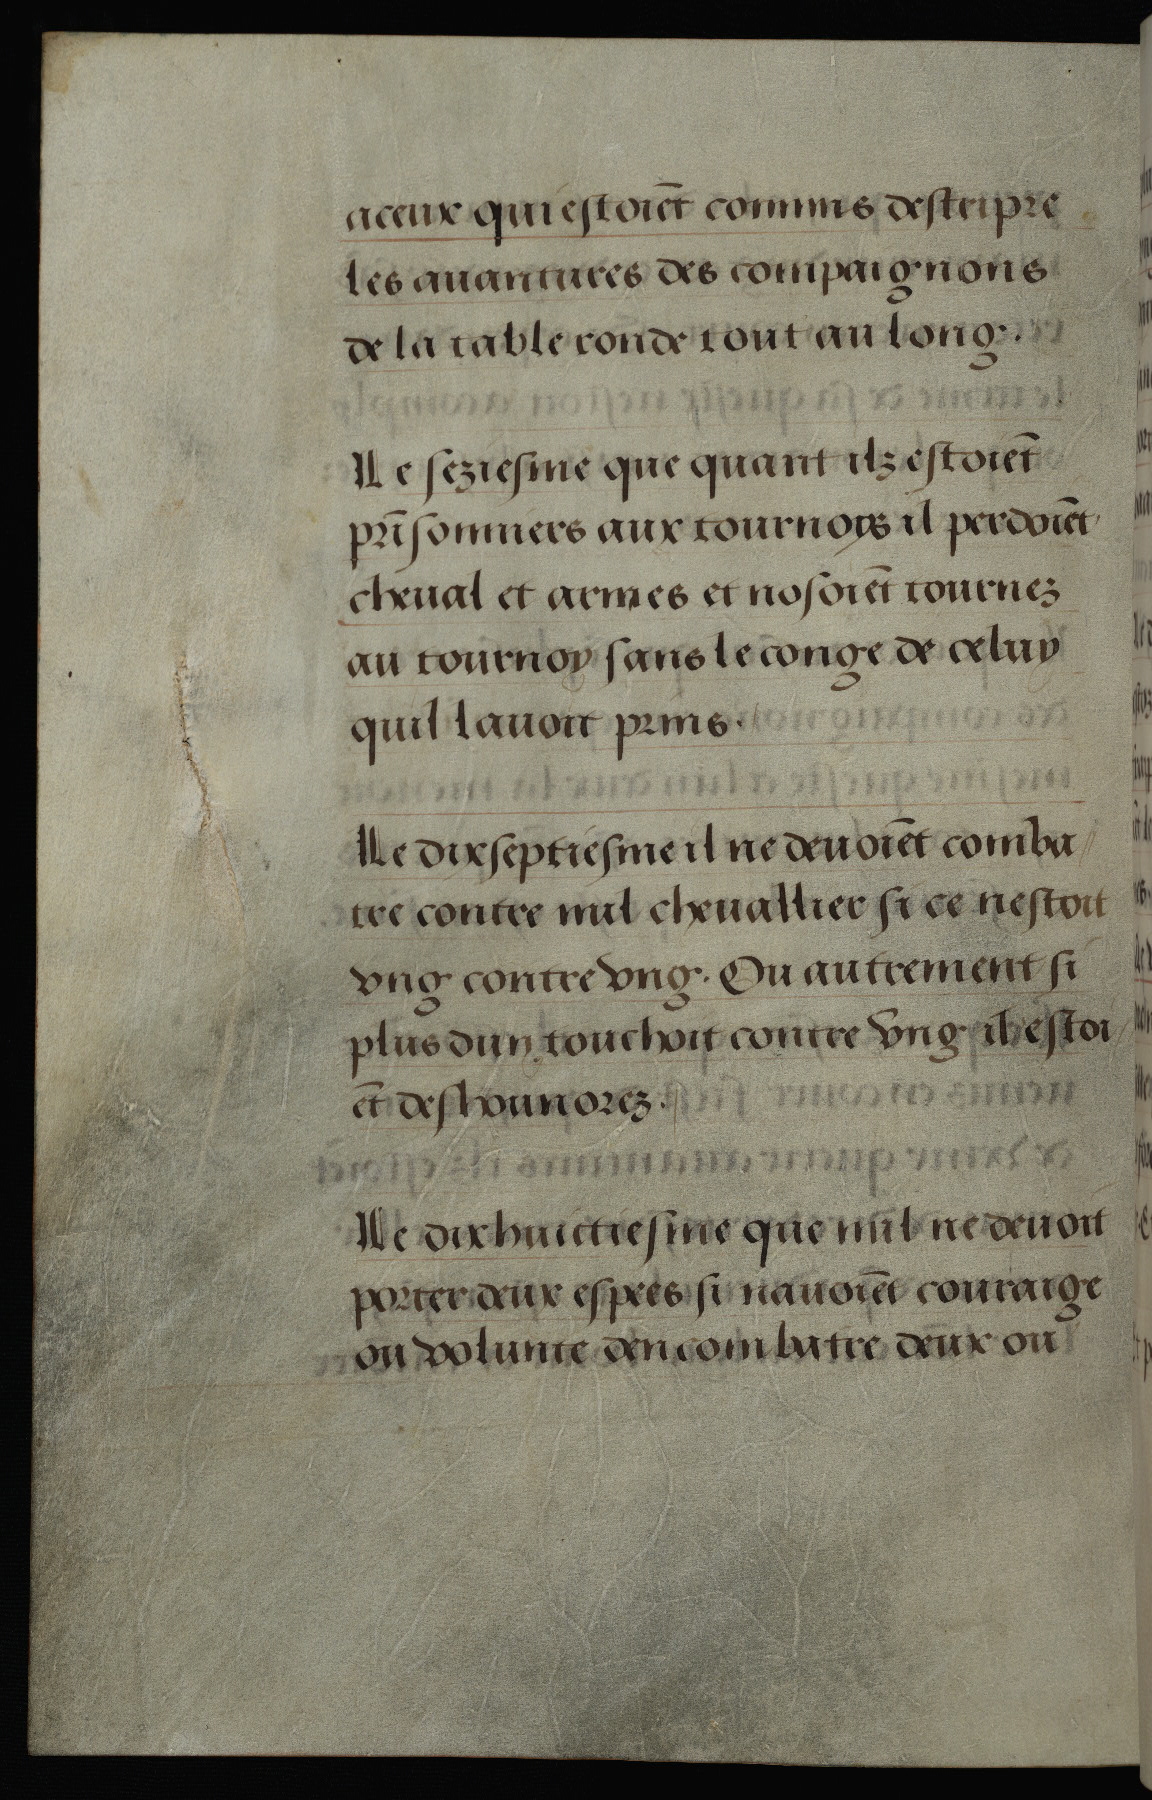 aceux qui estoiēt commis destripre
les auantures des compaignons
de la table ronde tout au long.
Le seziesme que quant ilz estoiēt
prīsonniers aux tournoys il perdoiēt
cheual et armes et nosoiēt tournez
au tournoy sans le conge de celuy
quil lauoit prins.
Le dixseptiesme il ne deuoiēt comba
tre contre nul cheuallier si ce nestoit
vng contre vng. Ou autrement si
plus dun touchoit contre vng il estoi
ēt deshounorez.
Le dixhuictiesme que nul ne deuoit
porter deux espees si nauoiēt couraige
ou volunte den combatre deux ou